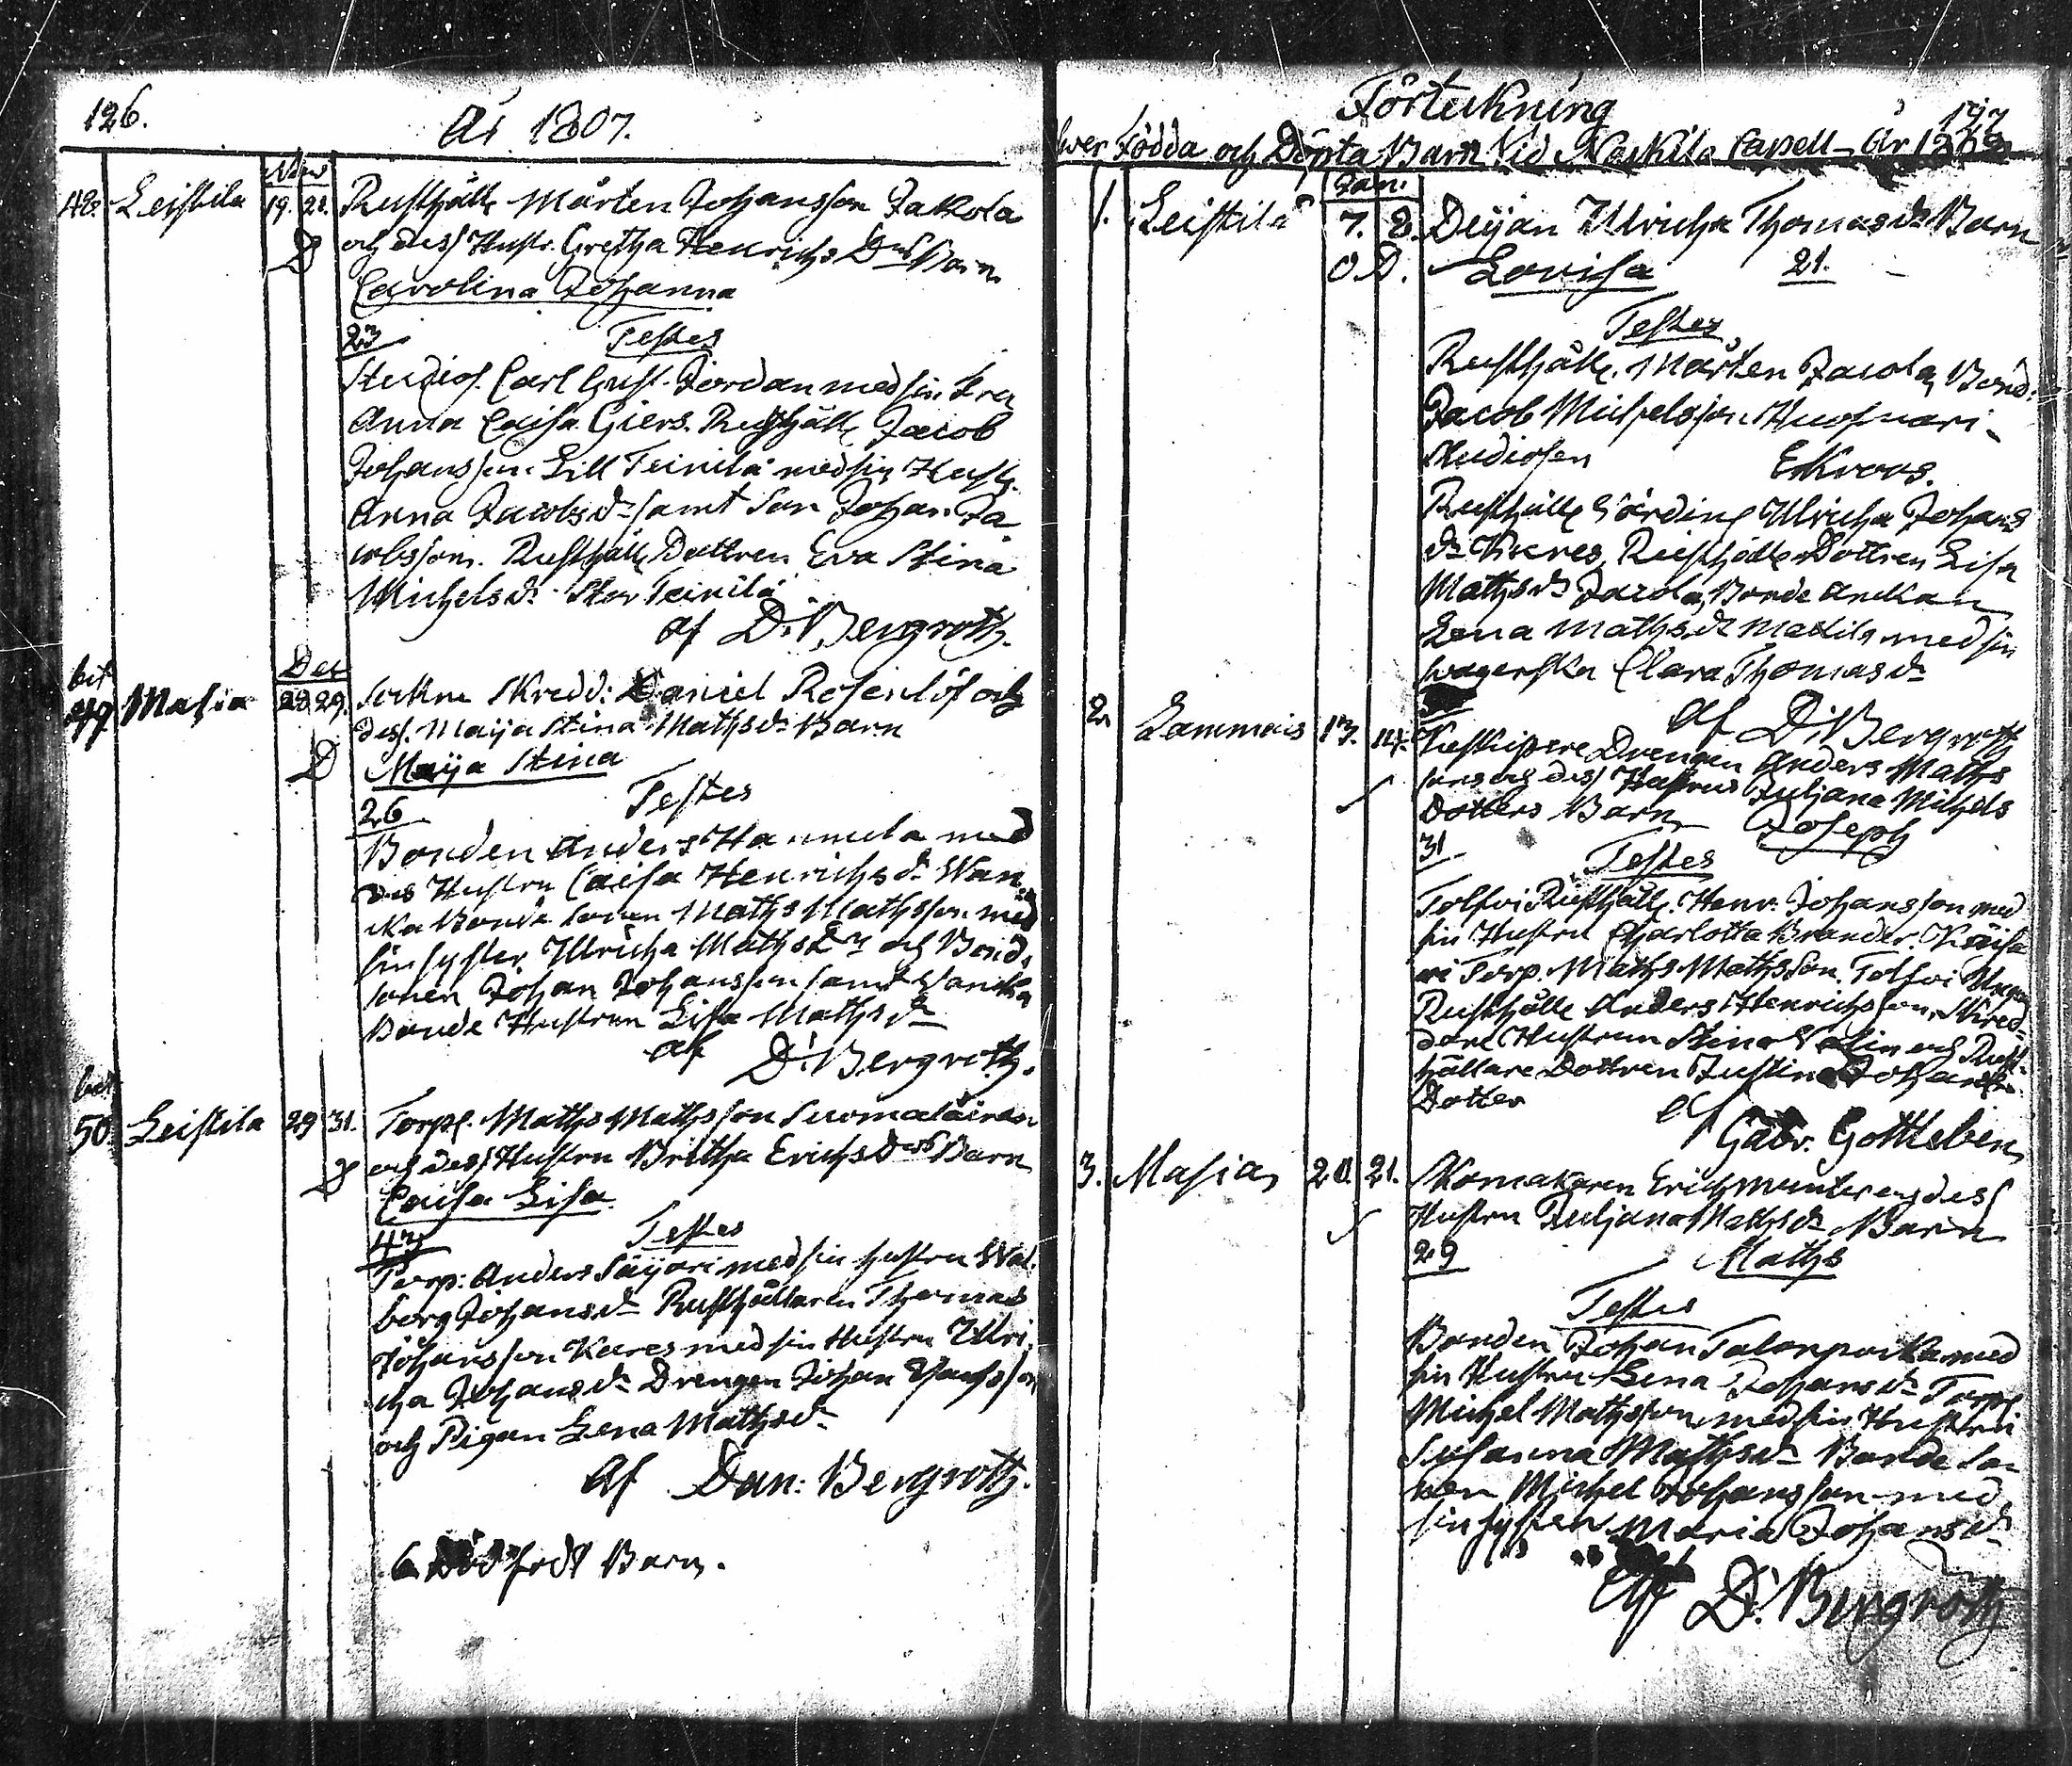 126.
År 1807.
Nov
48. Leistila 19. 21. Rusthåll. Mårten Johansson Jakola
D och dess Hustr. Gretha Henrichs Drs Barn
Carolina Johanna
23 Testes
Studios. Carl Gust. Jordan med sin Fru
Anna Caisa Giers. Rusthåll. Jacob
Johansson Lill Teinilä med sin Hustr.
Anna Jacobs dr samt Son Johan Ja
cobsson. Rusthåll. Dottren Eva Stina
Michels dr Stor Teinilä
af D. Bergroth.
Dec
49. Masia 28 29. Sockne Skredd: Daniel Rosenlöf och
dess Maija Stina Maths dr Barn
D Maija Stina
26 Testes
Bonden Anders Hannula med
des Hustru Caisa Henrichs dr Wan
Bonde sonen Maths Mathsson med
sin syster Ulricha Maths Dr och Bond.
sonen Johan Johansson samt
Bonde Hustrun Lisa Maths dr
af D. Bergroth.
50. Leistila 29 31. Torp. Maths Mathsson Suomalainen
D och dess Hustru Britha Erichs drs Barn
Caisa Lisa
43 Testes
Torp: Anders Säijari med sin hustru Wal
borg Johans dr Rusthållaren Thomas
Johansson Kares med sin Hustru Ulri
cha Johans dr Drengen Johan
och Pigan Lena Maths dr
af Dan: Bergroth.
6 Död födt Barn.
Förteckning
127
öwer Födda och Döpta Barn Vid Capell År
Jan.
1. Leistilä 7. 8. Deijan Ulricha Thomas dr Barn
O.D. Lovisa 21.
Testes
Rusthåll. Mårten Jacola, Bond:
Jacob Michelsson
Studiosen Ekroos.
Rusthåll. Ulricha Johans
dr Kares, Rusthåll. Dottren Lisa
Maths dr Jacola, Bonde Enckan
Lena Maths dr Mattila med sin
swägerska Clara Thomas dr
af D. Bergroth
2. Lammais 13. 14. Drengen Anders Maths
sons och dess Hustrus Juljana Michels
Dotters Barn Joseph
31 Testes
Tolfvi Rusthåll. Henr. Johansson med
sin Hustru Charlotta Brander.
ri Torp. Maths Mathsson. Tolfvi
Rusthåll. Anders Henrichsson, Skred
dare Hustrun Stina och Rust
hållare Dottren Justina Johans
Dotter
af Gabr. Gottleben
3. Masia 20. 21. Skomakaren Erich Munter och dess
Hustru Juljana Maths dr Barn
29 Maths
Testes
Bonden Johan Talonpoika med
sin Hustru Lena Johans dr Torp
Michel Mathsson med sin Hustru
Susanna Maths dr Bonde So
nen Michel Johansson med
sin syster Maria Johans dr
af D. Bergroth